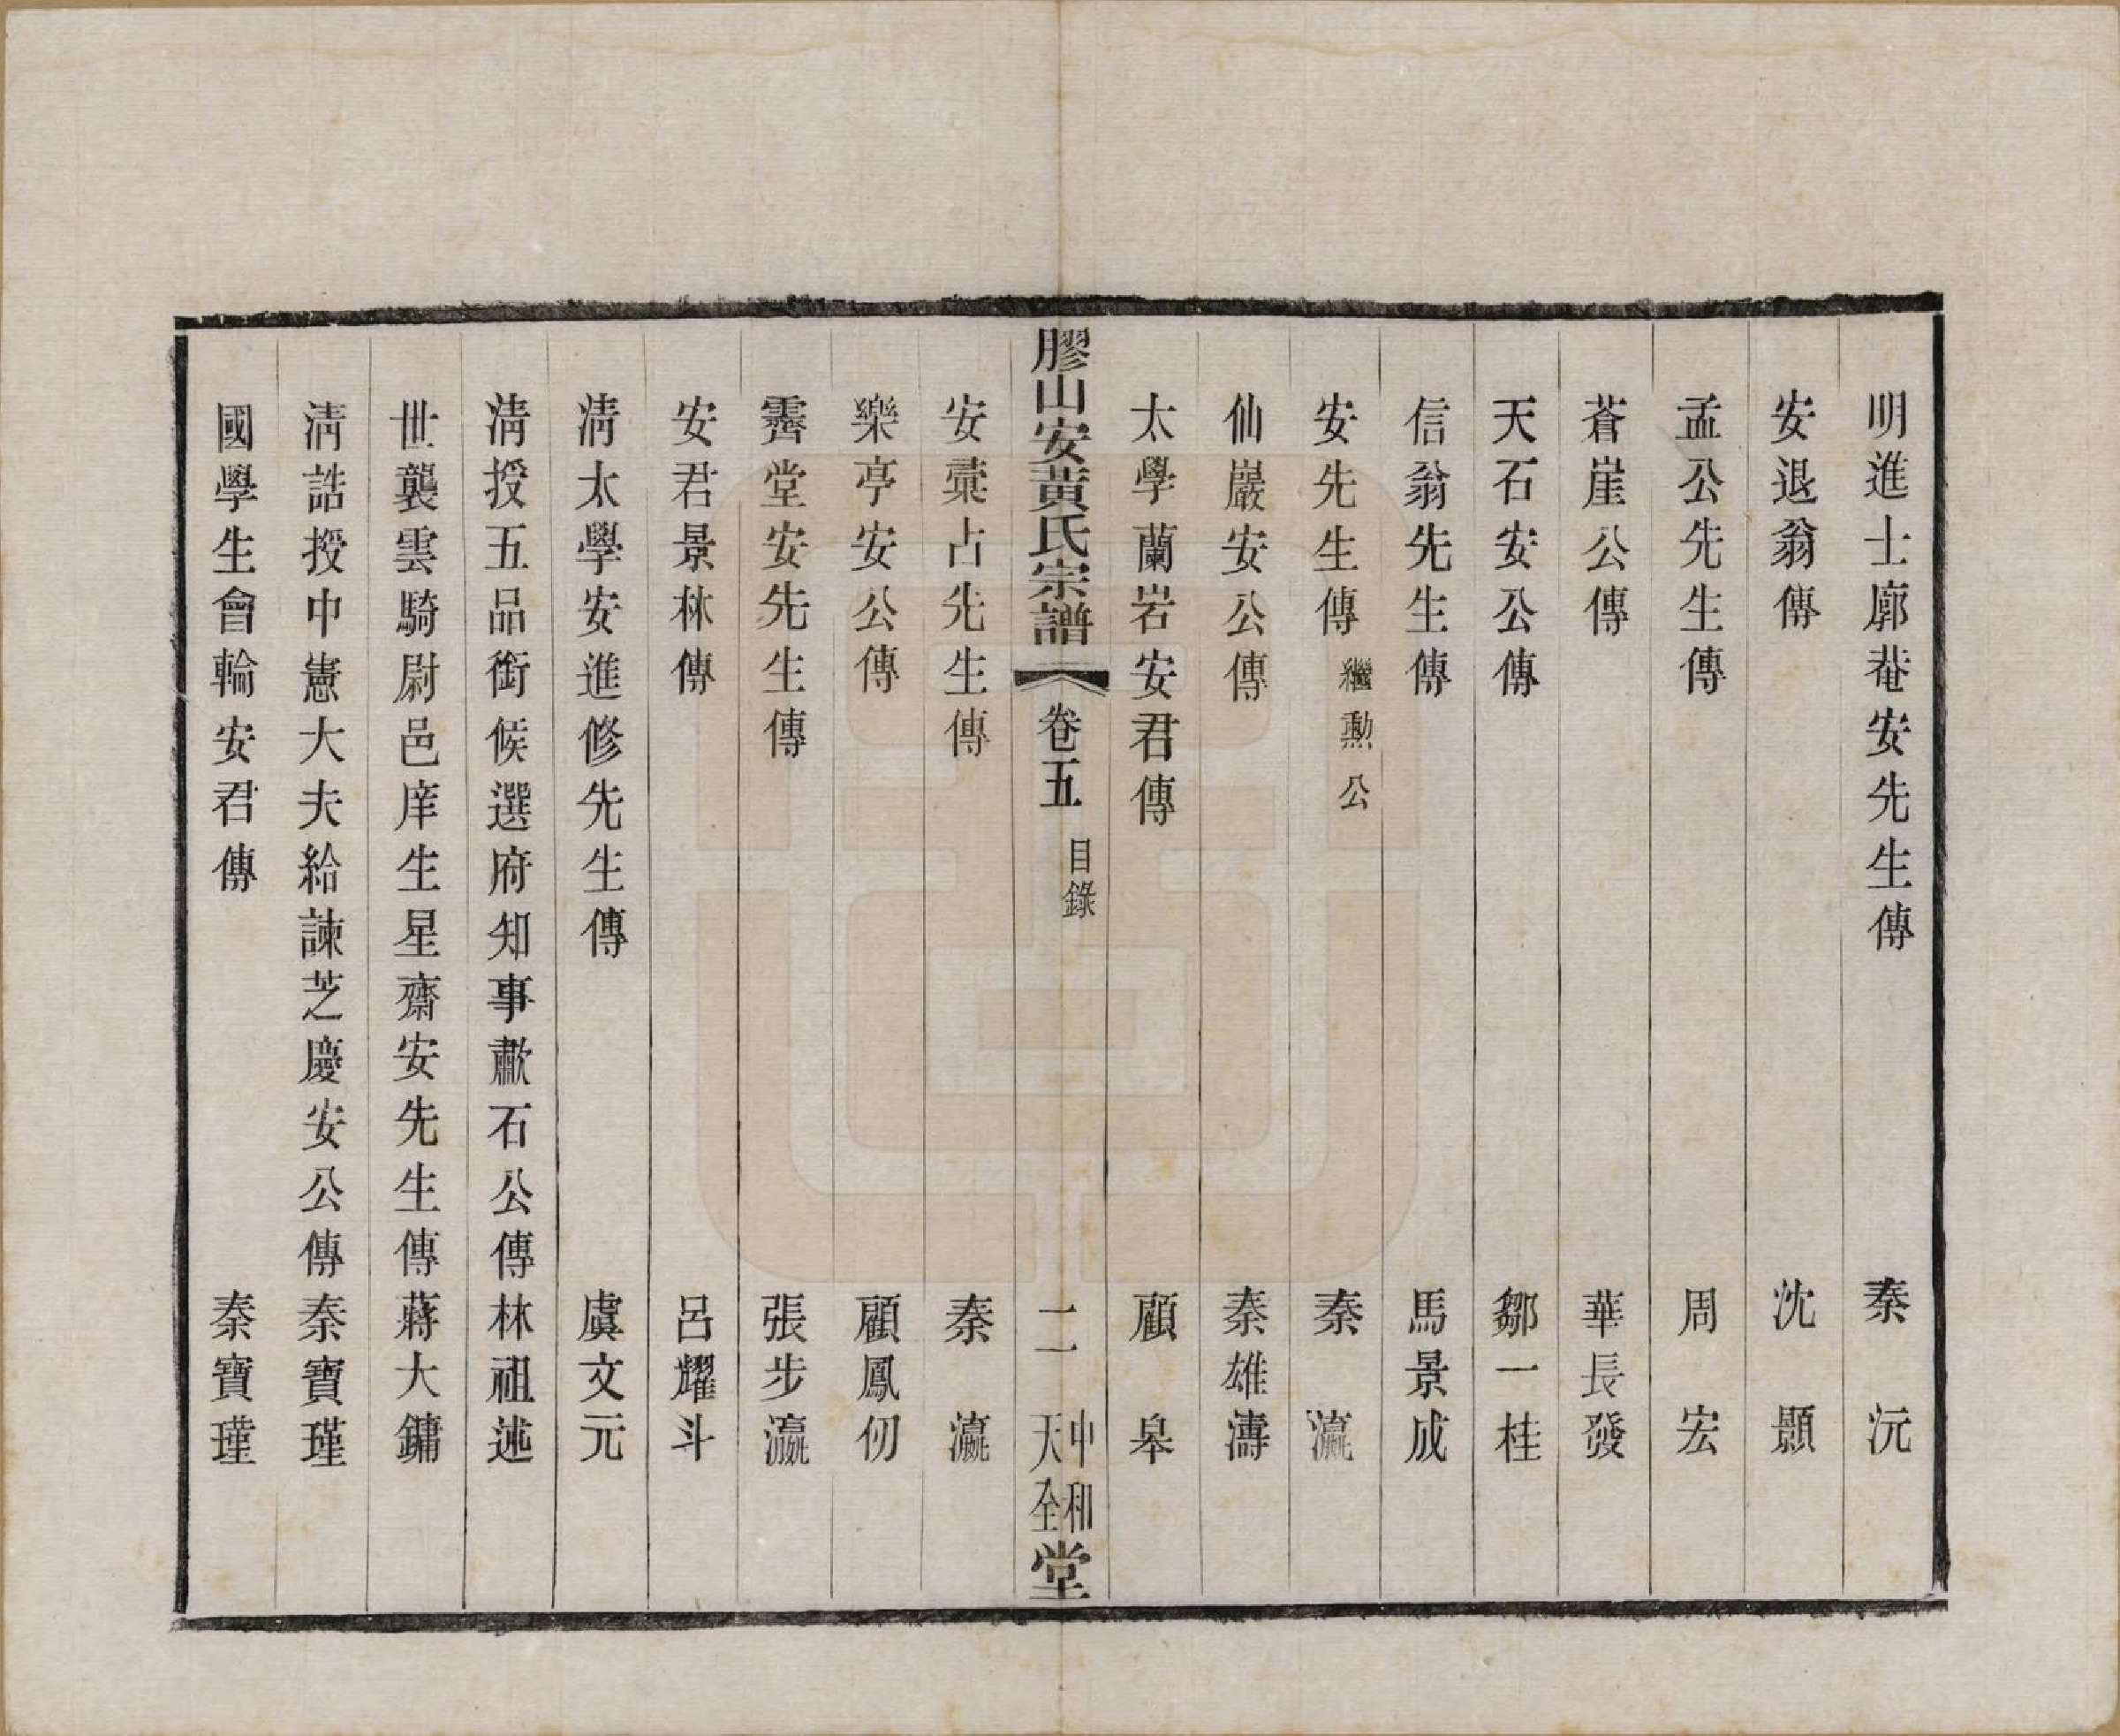 明進士廓菴安先生傳 秦沅
安退翁傳 沈顥
孟公先生傳 周宏
蒼崖公傳 華長發
天石安公傳 鄒一桂
信翁先生傳 馬景成
安先生傳 繼勳公 秦瀛
仙巖安公傳 秦雄濤
太學蘭岩安君傳 顧皋
膠山安黃氏宗譜 卷五 目錄 二 中和天全堂
安槀占先生傳 秦瀛
樂亭安公傳 顧鳳仞
霽堂安先生傳 張步瀛
安君景林傳 呂耀斗
淸太學安進修先生傳 虞文元
淸授五品銜候選府知事歗石公傳 林祖述
世襲雲騎尉邑庠生星齋安先生傳 蔣大鏞
淸誥授中憲大夫給諫芝慶安公傳 秦寶瑾
國學生會輪安君傳 秦寶瑾